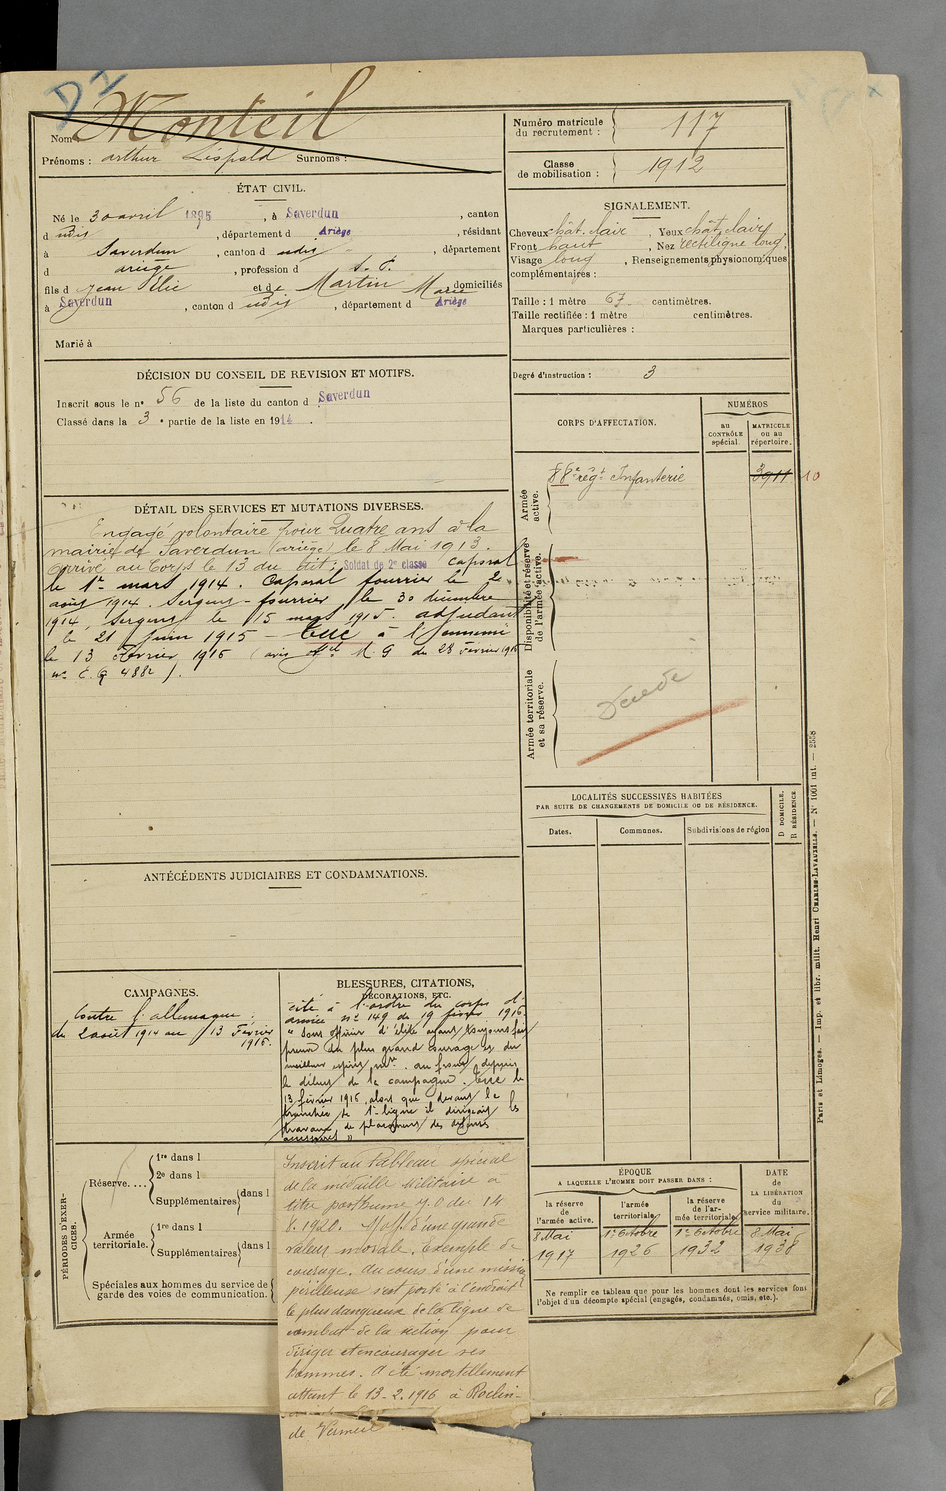 D1
Nom Monteil
Prénoms : Arthur Léopold Surnoms :
Numéro matricule du recrutement : 117
Classe de mobilisation : 1912
ÉTAT CIVIL.
Né le 30 avril 1895, à Saverdun, canton
d udis, département d Ariège, résidant
à Saverdun, canton d udis, département
d ariège, profession d s. P.
fils d Jean Élie et de Martin Marie domiciliés
à Saverdun, canton d udis, département d Ariège
Marié à
SIGNALEMENT.
Cheveux chât. clair, Yeux chât. clair
Front haut, Nez rectiligne long,
Visage long, Renseignements physionomiques
complémentaires :
Taille : 1 mètre 67 centimètres.
Taille rectifiée : 1 mètre centimètres.
Marques particulières :
Degré d'instruction : 3
DÉCISION DU CONSEIL DE REVISION ET MOTIFS.
Inscrit sous le no 56 de la liste du canton d Saverdun
Classé dans la 3 e partie de la liste en 1914.
CORPS D'AFFECTATION.
NUMÉROS
AU CONTRÔLE spécial.
MATRICULE ou au répertoire.
Armée active.
88e régt Infanterie
3911 10
Disponibilité et réserve de l'armée active.
Armée territoriale et sa réserve.
Décédé
DÉTAIL DES SERVICES ET MUTATIONS DIVERSES.
Engagé volontaire pour Quatre ans à la
mairie de Saverdun (ariège) le 8 Mai 1913.
Arrivé au Corps le 13 du dit; Soldat de 2e classe caporal
le 1er mars 1914. Caporal fourrier le 2
août 1914. Sergent-fourrier le 30 décembre
1914. Sergent le 15 mars 1915. adjudant
le 21 juin 1915 - Tué à l'Ennemi
le 13 Février 1916 (avis M. G du 28 Février 1916
no C. G 4882).
LOCALITÉS SUCCESSIVES HABITÉES
PAR SUITE DE CHANGEMENTS DE DOMICILE OU DE RÉSIDENCE.
Dates.
Communes.
Subdivisions de région
D DOMICILE.
R RÉSIDENCE
ANTÉCÉDENTS JUDICIAIRES ET CONDAMNATIONS.
CAMPAGNES.
Contre l'allemagne :
du 2 août 1914 au 13 Février
1916.
BLESSURES, CITATIONS,
DÉCORATIONS, ETC.
cité à l'ordre du corps d'
armée no 149 du 19 février 1916
" Sous officier d'élite ayant toujours fait
preuve du plus grand courage et du
meilleur esprit au front depuis
le début de la campagne. Tué le
13 février 1916, alors que devant la
tranchée de 1re ligne il dirigeait les
travaux de placement des défenses
accessoires "
Inscrit au tableau spécial
de la médaille Militaire à
titre posthume J. O du 14
8. 1920. d'une grande
valeur morale. Exemple de
courage. Au cours d'une mission
périlleuse s'est porté à l'endroit
le plus dangereux de la ligne de
combat de la section pour
diriger et encourager ses
hommes. A été mortellement
atteint le 13-2.1916 à Roclin-
de Vermeil
PÉRIODES D'EXERCICES.
Réserve....
1re dans l
2e dans l
Supplémentaires dans l
Armée territoriale.
1re dans l
Supplémentaires dans l
Spéciales aux hommes du service de
garde des voies de communication.
ÉPOQUE
A LAQUELLE L'HOMME DOIT PASSER DANS :
la réserve de l'armée active.
l'armée territoriale.
la réserve de l'armée territoriale.
DATE DE LA LIBÉRATION du service militaire.
8 Mai 1er Octobre 1er Octobre 8 Mai
1917 1926 1932 1938
Ne remplir ce tableau que pour les hommes dont les services font
l'objet d'un décompte spécial (engagés, condamnés, omis, etc.).
Paris et Limoges. — Imp. et libr. milit. Henri CHARLES-LAVAUZELLE. — N° 1001 int. — 2558